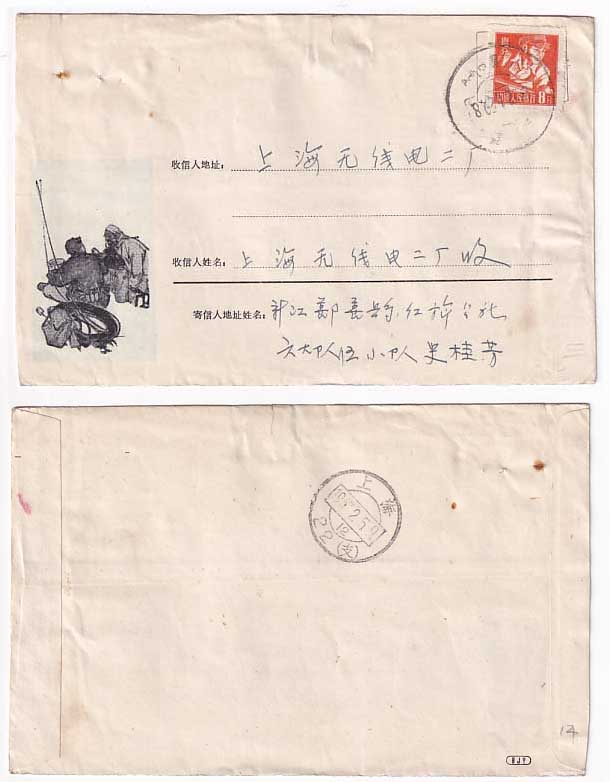 中国人民邮政 8分
收信人地址： 上海无线电二厂
收信人姓名： 上海无线电二厂收
寄信人地址姓名： 浙江鄞县红旗公社
六大队五小队 史桂芳
上海
22(支)
12
14